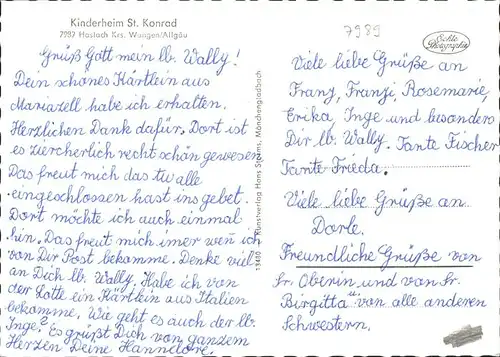 Kinderheim St. Konrad
7989
7987 Haslach Krs. Wangen/Allgäu
Echte Photographie
Grüß Gott mein lb. Wally!
Dein schönes Kärtlein aus
Mariazell habe ich erhalten.
Herzlichen Dank dafür. Dort ist
es sicherlich recht schön gewesen
Das freut mich das tu alle
eingeschlossen hast ins gebet.
Dort möchte ich auch einmal
hin. Das freut mich imer wen̄ ich
von Dir Post bekomme. Denke viel
an Dich lb. Wally. Habe ich von
der Lotte ein Kärtlein aus Italien
bekomme. Wie geht es auch der lb.
Inge? Es grüßt Dich von ganzem
Herzen Deine Hannelore.
13440 Kunstverlag Hans Mönchengladbach
Viele liebe Grüße an
Franz, Franzi, Rosemarie,
Erika Inge und besonders
Dir lb. Wally. Tante Fischer
Tante Frieda.
Viele liebe Grüße an
Dorle.
Freundliche Grüße von
Sr. Oberin und von Sr.
Birgitta von alle anderen
Schwestern.